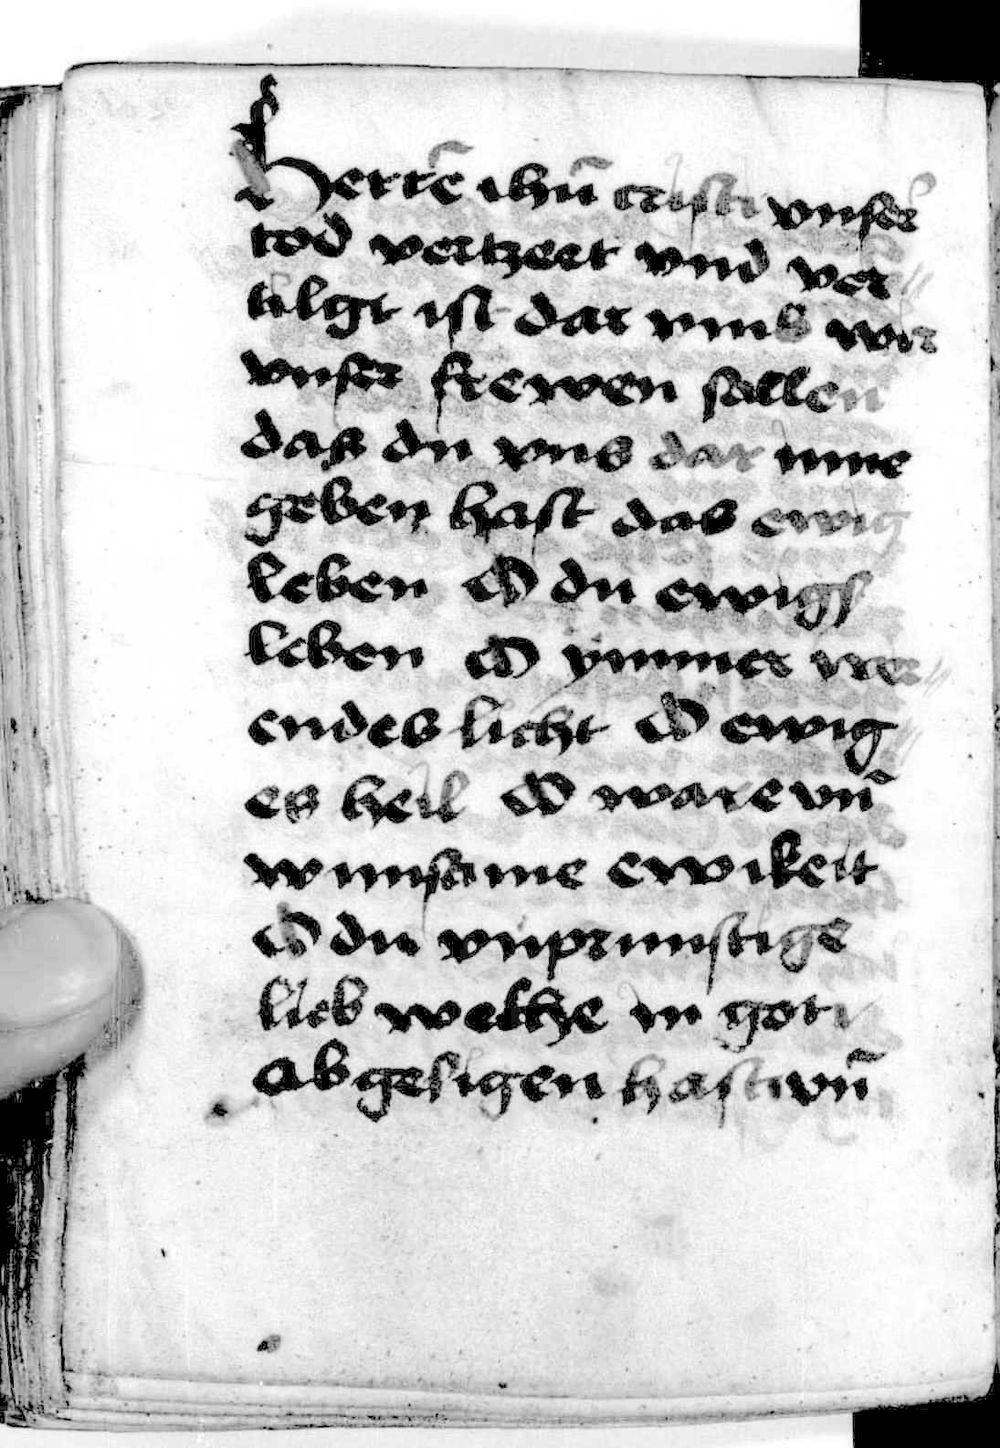 Herrē ihū cristi vnser
tod vertzert vnd ver
tilgt ist dar vmb wir
vnser frewen sollen
das du vns dar inne
geben hast das ewig
leben O du ewigs
leben O ymmer wer〃
endes licht O ewig〃
es heil O ware vn̄
wunsame ewikeit
O du vnprunstige
lieb welche in got
ab gesigen hast vn̄